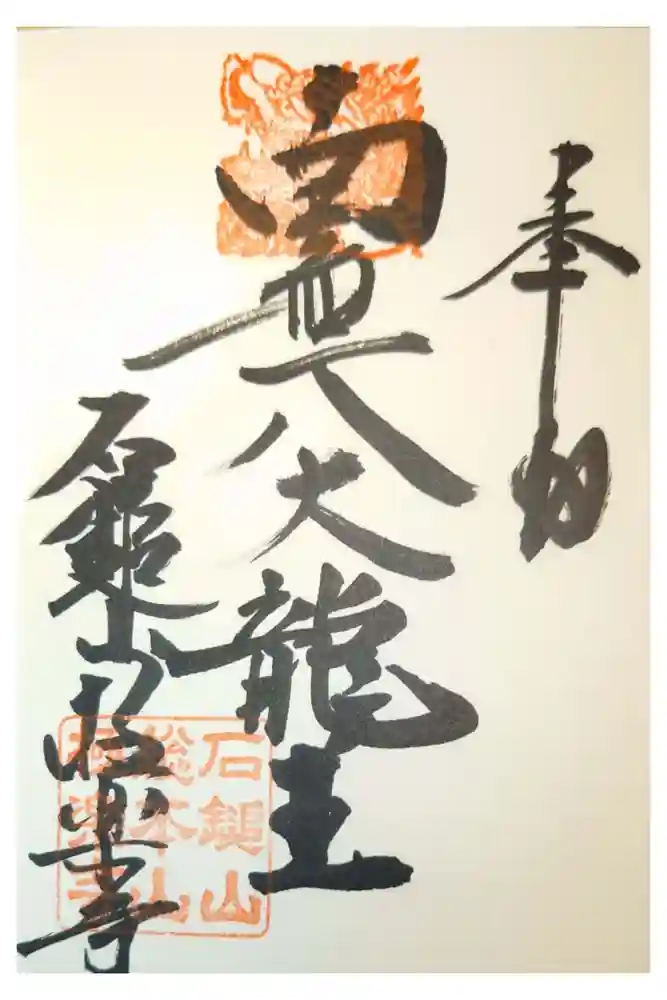 奉拝
南無八大龍王
石鎚山極楽寺
石鎚山
総本山
極楽寺